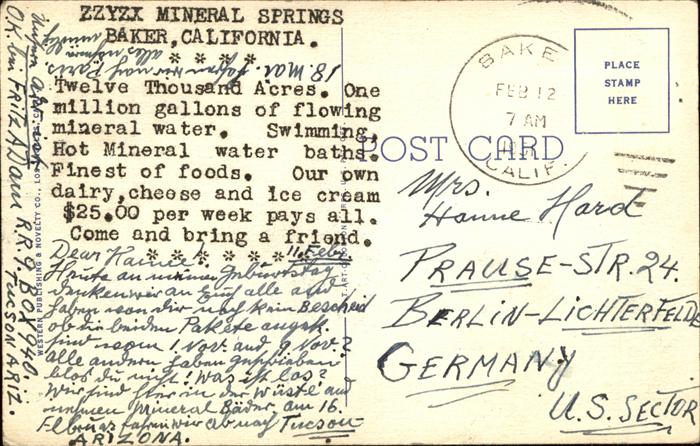 ZZYZX MINERAL SPRINGS
BAKER, CALIFORNIA.
* * * * *
Twelve Thousand Acres. One
million gallons of flowing
mineral water. Swimming,
Hot Mineral water baths.
Finest of foods. Our own
dairy, cheese and ice cream
$25.00 per week pays all.
Come and bring a friend.
* * * * * *
11. Feb.
Dear Hanne!
Heute an meinen Geburtstag
denken wir an Euch alle und
haben von dir noch kein Bescheid
ob die beiden Pakete angek.
sind vom 1. Nov. und 9 Nov.?
alle andern haben geschrieben
blos du nicht! Was ist los?
Wir sind hier in der Wüste und
nehmen Mineral Bäder. am 16.
Feb. fahren wir ab nach Tucson
ARIZONA.
18. Mai. fahren wir nach Paris.
alles
O.K. bei FRITZ ADAM R.R.4. BOX 940.
TUCSON ARIZ.
WESTERN PUBLISHING & NOVELTY CO.,
POST CARD
BAKE
FEB 12
7 AM
CALIF.
PLACE
STAMP
HERE
Mrs.
Hanne Hard
PRAUSE-STR. 24.
BERLIN-LICHTERFELDE
GERMANY
U.S. SECTOR